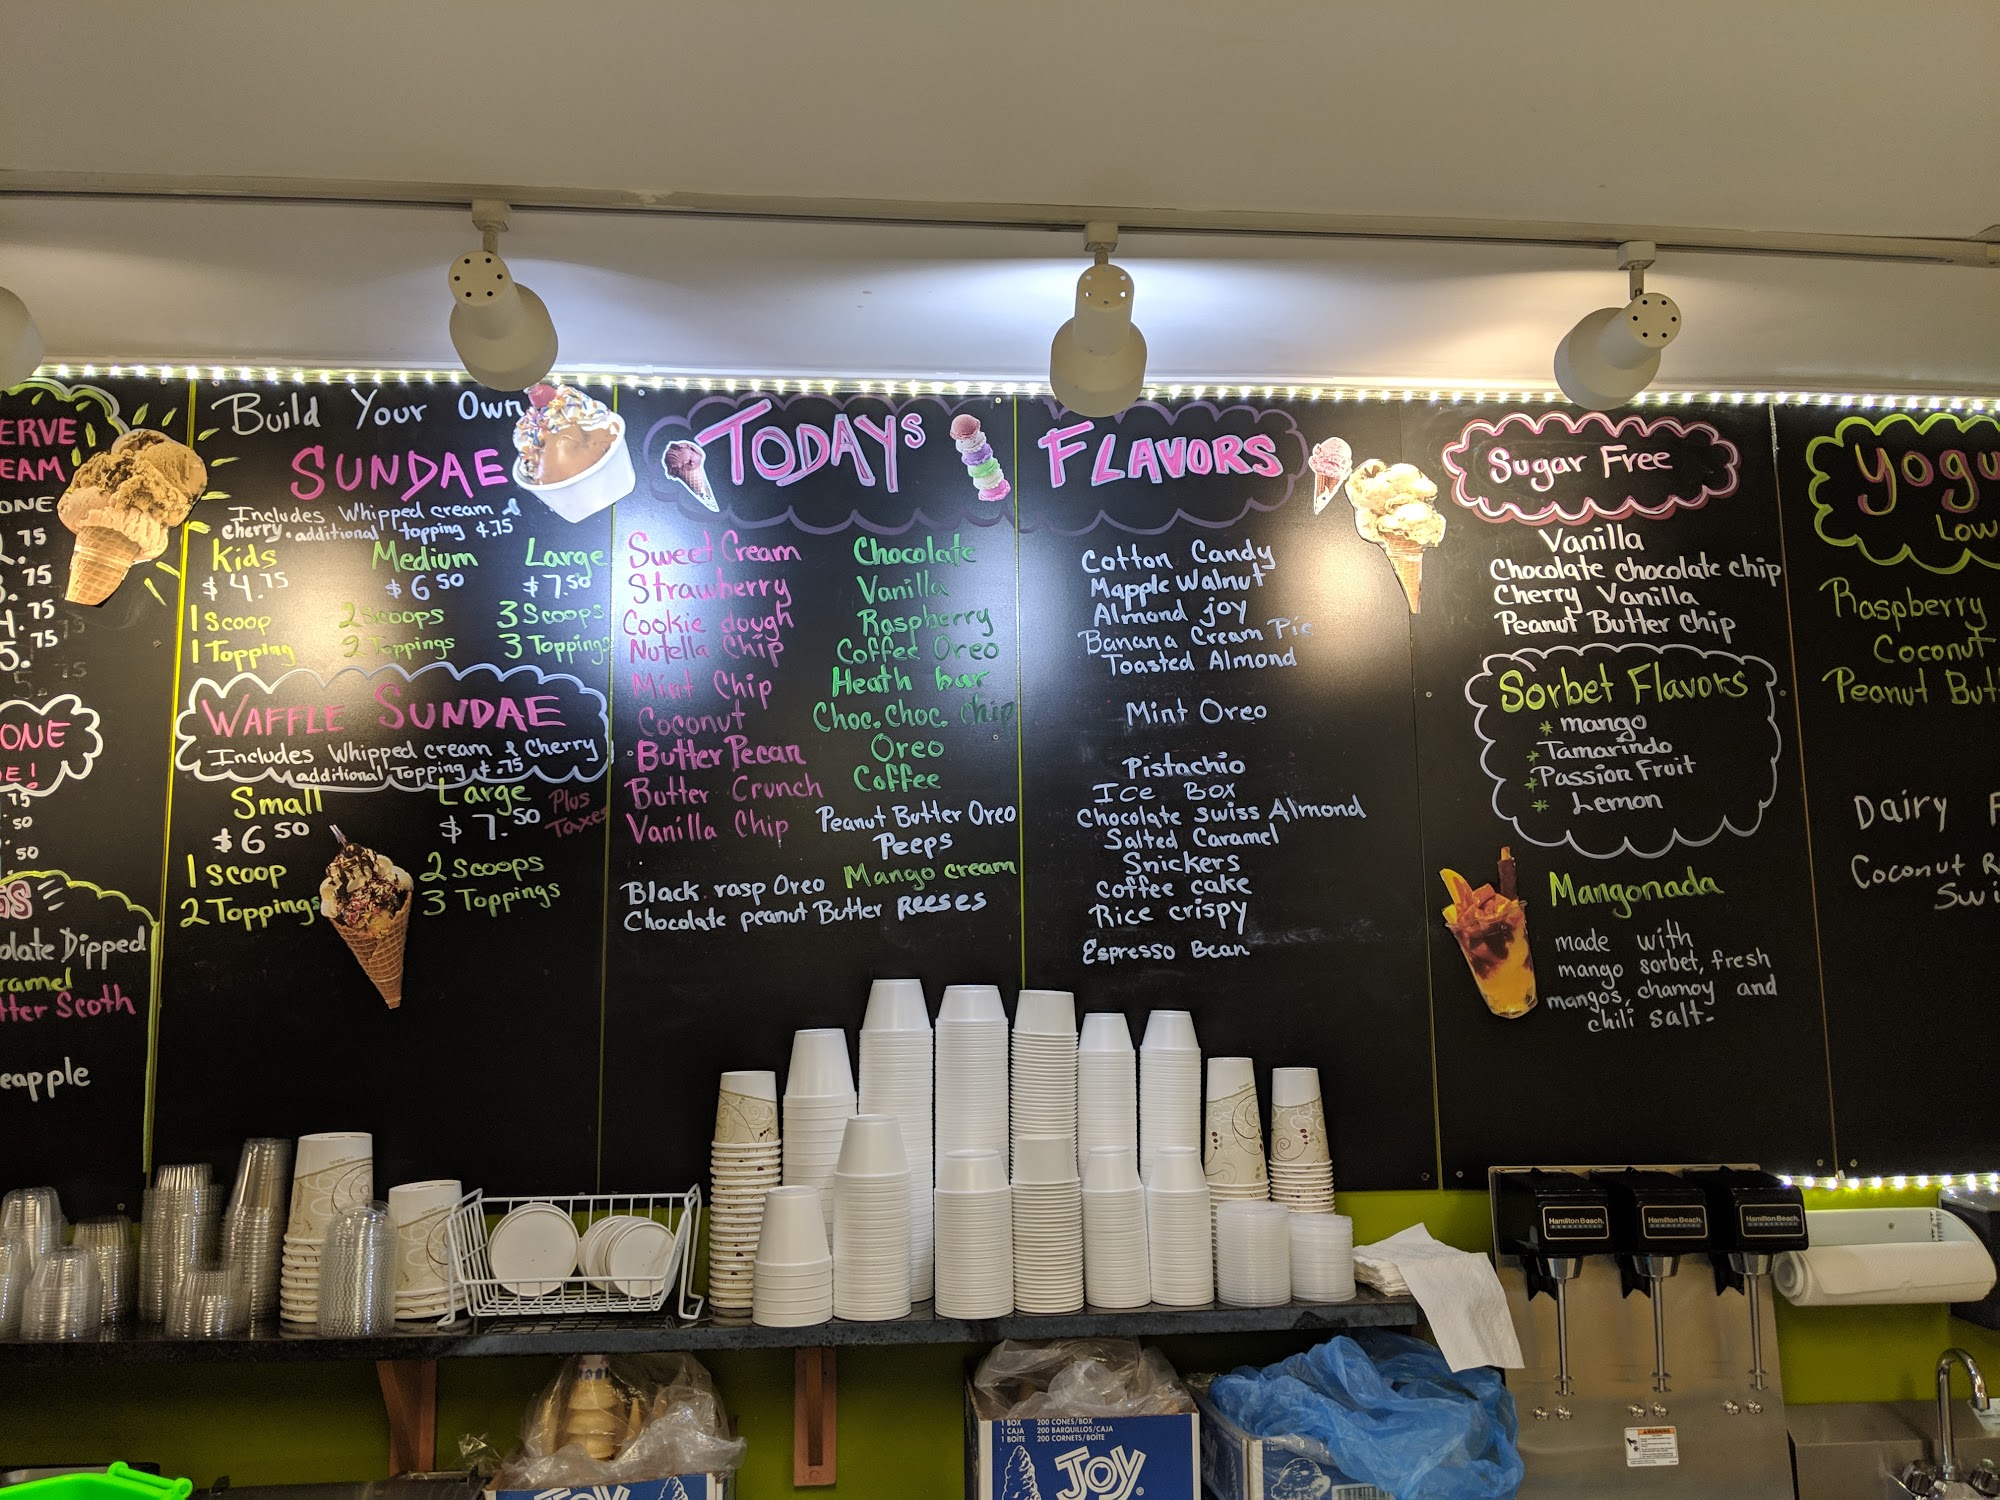 ERVE
EAM
ONE
.75
.75
4.75
5.75
ONE
E!
.75
.50
.50
GS
olate Dipped
ramel
tter Scoth
eapple
Build Your Own
SUNDAE
Includes Whipped cream &
cherry. additional topping $.75
Kids Medium Large
$4.75 $6 50 $7.50
1 Scoop 2 Scoops 3 Scoops
1 Topping 2 Toppings 3 Toppings
WAFFLE SUNDAE
Includes Whipped cream & Cherry
additional Topping $.75
Small Large
$6 50 $7.50
Plus
Taxes
1 scoop 2 Scoops
2 Toppings 3 Toppings
TODAYs FLAVORS
Sweet Cream
Strawberry
Cookie dough
Nutella Chip
Mint Chip
Coconut
Butter Pecan
Butter Crunch
Vanilla Chip
Chocolate
Vanilla
Raspberry
Coffee Oreo
Heath bar
Choc. Choc. chip
Oreo
Coffee
Peanut Butter Oreo
Peeps
Mango cream
Black. rasp Oreo
Chocolate peanut Butter Reeses
Cotton Candy
Mapple Walnut
Almond joy
Banana Cream Pie
Toasted Almond
Mint Oreo
Pistachio
Ice Box
Chocolate Swiss Almond
Salted Caramel
Snickers
Coffee cake
Rice crispy
Espresso Bean
Sugar Free
Vanilla
Chocolate chocolate chip
Cherry Vanilla
Peanut Butter chip
Sorbet Flavors
* mango
* Tamarindo
* Passion Fruit
* Lemon
Mangonada
made with
mango sorbet, fresh
mangos, chamoy and
chili salt.
Yogu
Low
Raspberry
Coconut
Peanut But
Dairy F
Coconut R
Swi
Hamilton Beach
COMMERCIAL
Hamilton Beach
COMMERCIAL
Hamilton Beach
COMMERCIAL
1 BOX 200 CONES/BOX
1 CAJA 200 BARQUILLOS/CAJA
1 BOÎTE 200 CORNETS/BOÎTE
JOY
JOY
WARNING